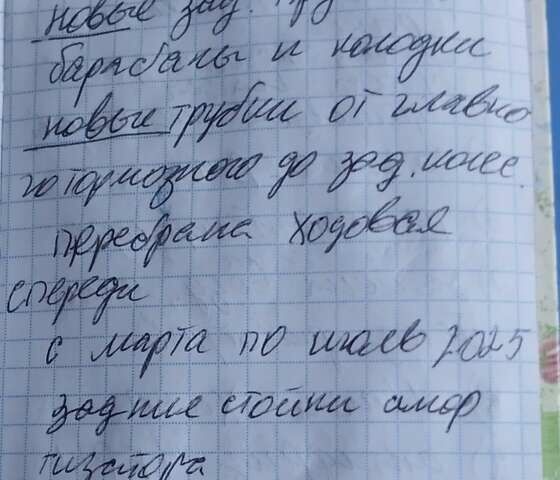 новые зад.
барабаны и колодки
новые трубки от главно
го тормозного до зад. колес.
перебрана ходовая
спереди
с марта по июль 2025
задние стойки амор
тизатора